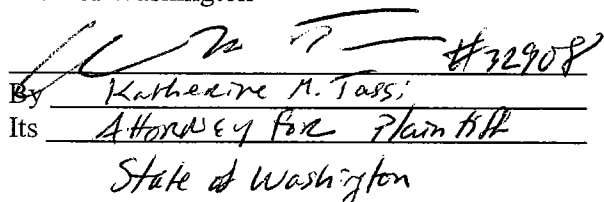 Washington
#32908
By Katherine M. Tassi
Its Attorney for Plaintiff
State of Washington